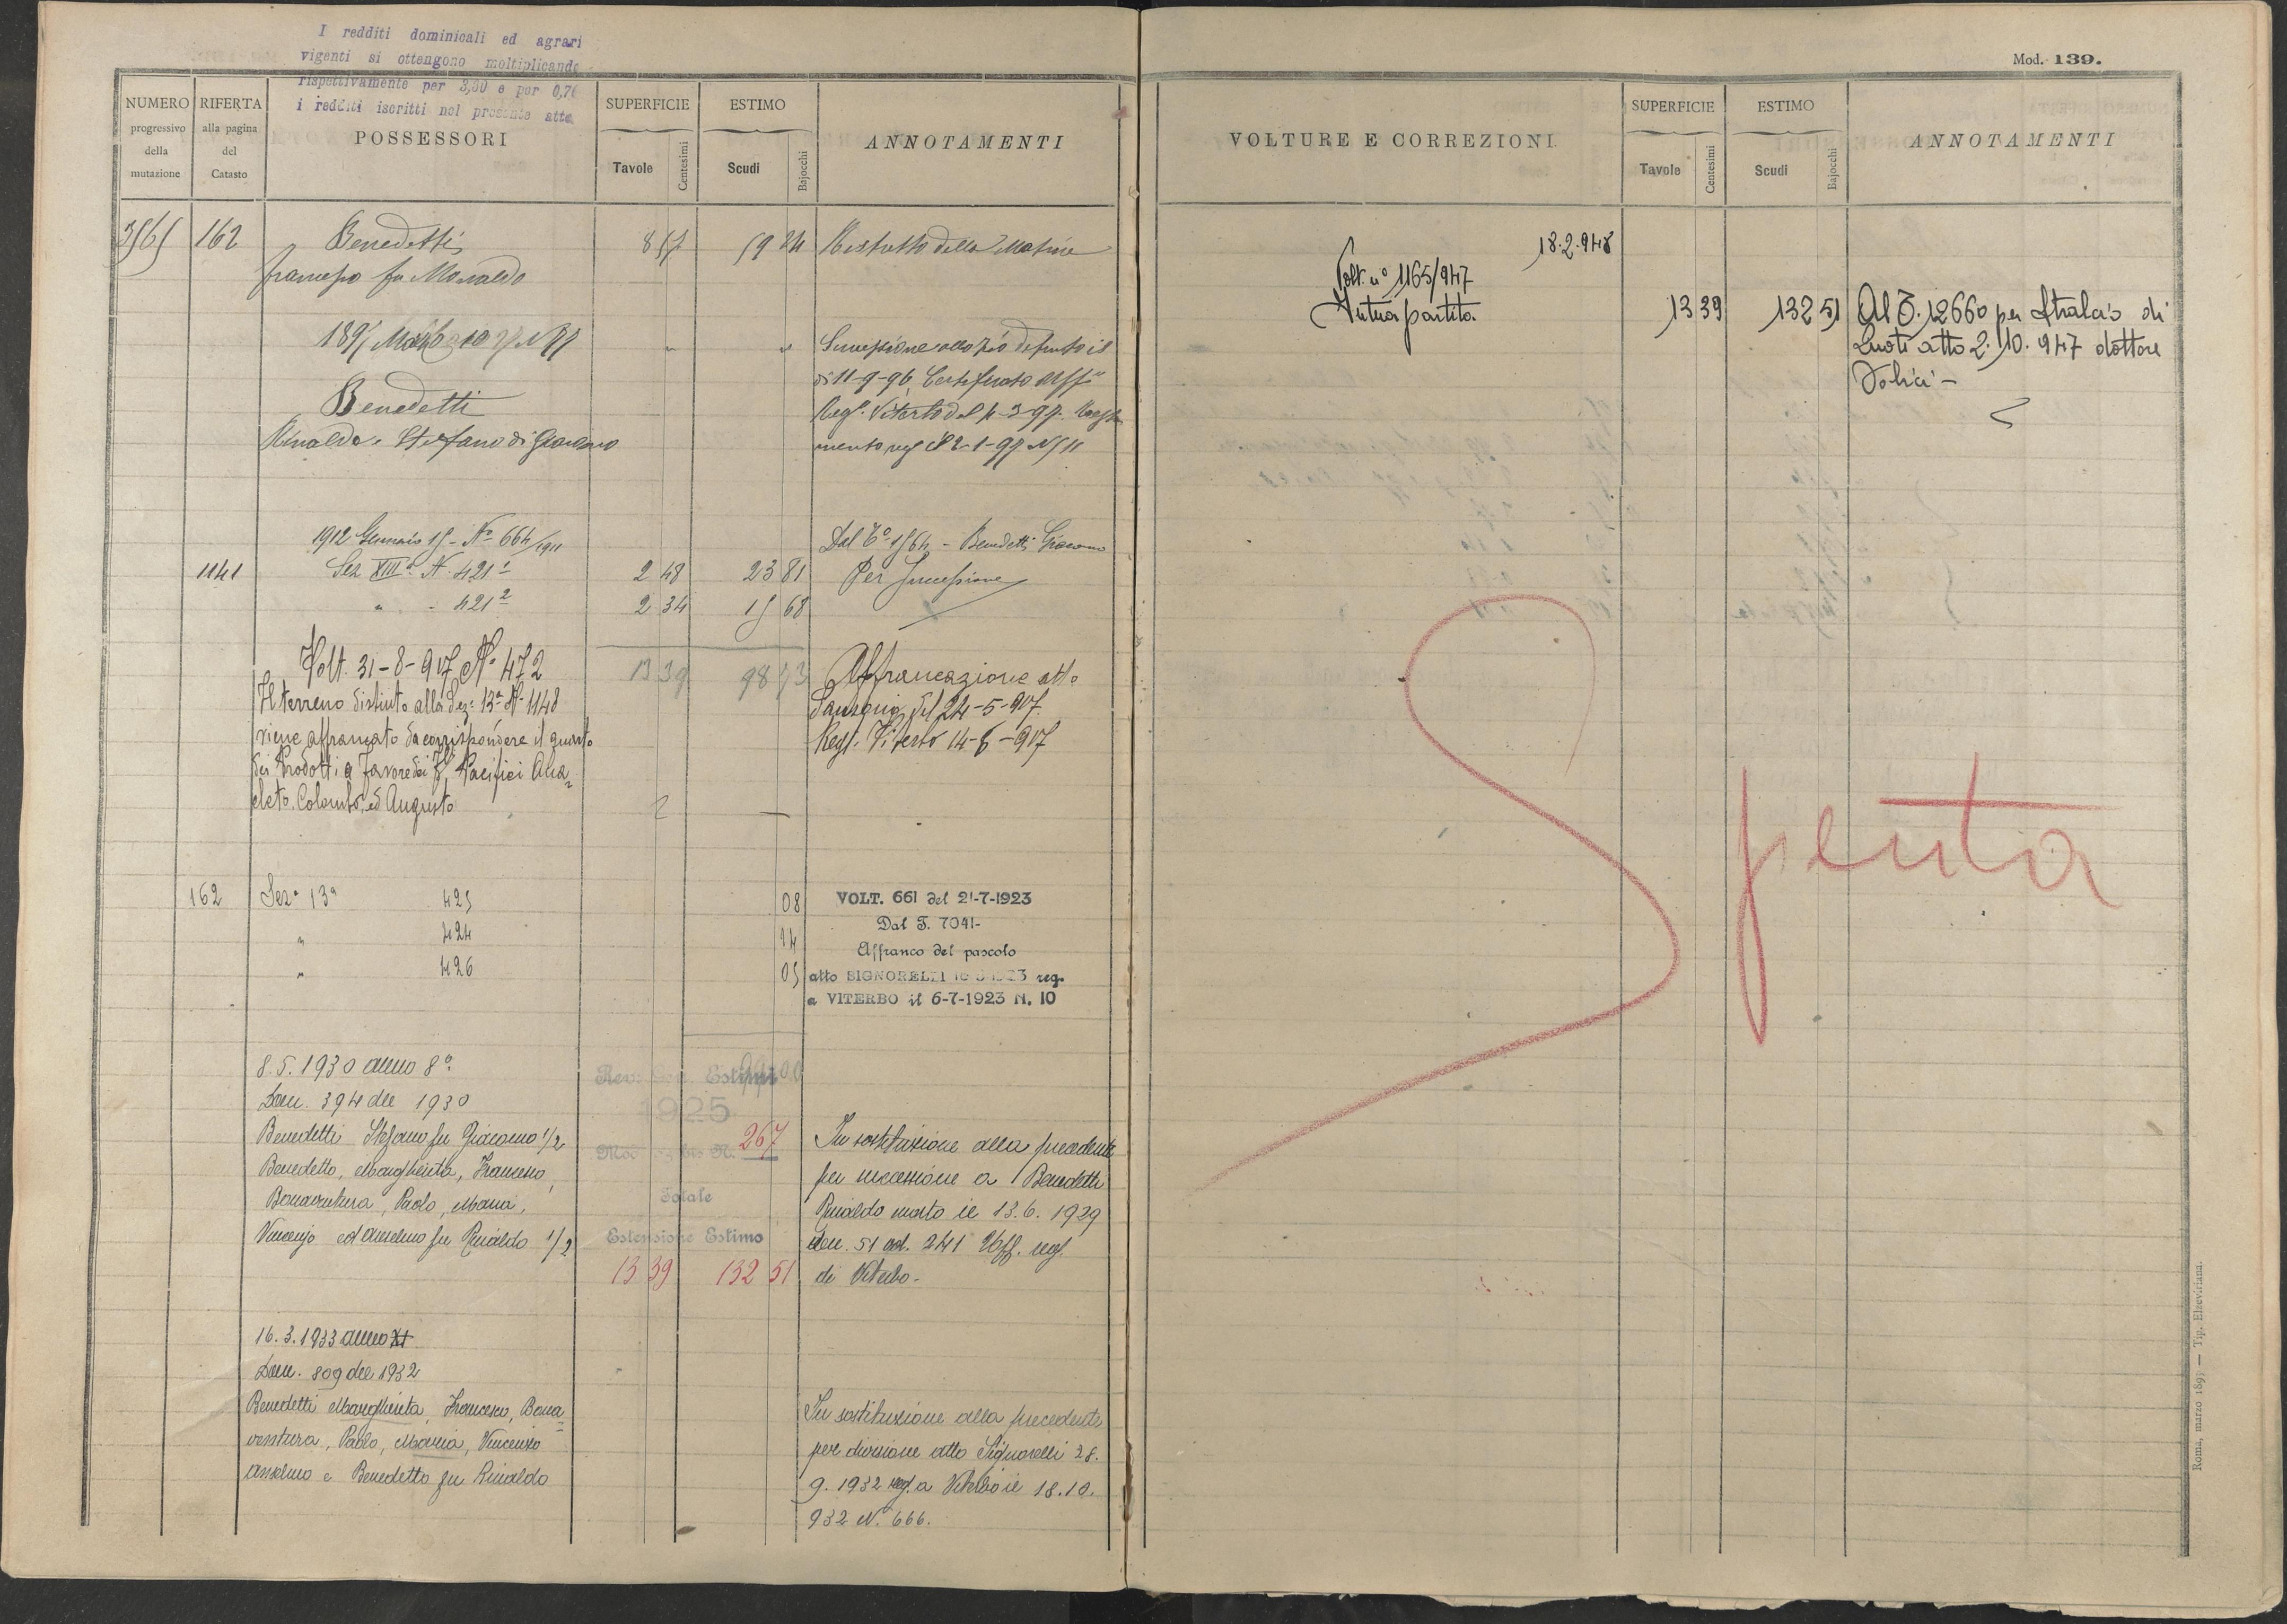 I redditi dominicali ed agrari
vigenti si ottengono moltiplicando
rispettivamente per 3,00 e per 0,70
i redditi iscritti nel presente atto
NUMERO progressivo della mutazione
RIFERTA alla pagina del Catasto
POSSESSORI
SUPERFICIE
Tavole Centesimi
ESTIMO
Scudi Bajocchi
ANNOTAMENTI
162 Benedetti 8 57 59 24 Ristretto della Matrice
Francesco fu Monaldo
Successione allo zio defunto il
dì 11-9-96, Certificato Uff°
Benedetti
Rinaldo e Stefano di Giacomo
1912 Gennaio 15 - N° 664/1911
Dal T° 1564 - Benedetti Giacomo
1141 Sez XIIIª N. 421 1 2 48 23 81 Per Successione
" - 421 2 2 34 15 68
Volt. 31-8-917 N° 472 13 39 98 73 Affrancazione atto
Il terreno distinto alla Sez: 13ª N. 1148
del 24-5-917
viene affrancato da corrispondere il quarto
Reg. Viterbo 14-6-917
dei Prodotti a favore dei Pacifici Ana=
cleto, Colombo, ed Augusto
162 Sezª 13ª 423 08
" 424 14
" 426 05
VOLT. 661 del 21-7-1923
Dal T. 7041-
Affranco del pascolo
atto SIGNORELLI reg.
a VITERBO il 6-7-1923 N. 10
8.5.1930 anno 8°
Den. 394 del 1930
Benedetti Stefano fu Giacomo 1/2
Benedetto, Margherita, Francesco,
Bonaventura, Paolo, Maria,
Vincenzo ed Anselmo fu Rinaldo 1/2
Rev. Gen. Estimi
1925
267
Totale
Estensione Estimo
13 39 132 51
In sostituzione alla precedente
per successione a Benedetti
Rinaldo morto il 13.6.1929
den. 51 vol. 241 Uff. reg.
di Viterbo-
16.3.1933 anno XI
Den. 809 del 1932
Benedetti Margherita, Francesco, Bona=
ventura, Paolo, Maria, Vincenzo
Anselmo e Benedetto fu Rinaldo
In sostituzione alla precedente
per divisione atto Signorelli 28.
9.1932 reg. a Viterbo il 18.10.
932 N. 666.
Mod. 139.
VOLTURE E CORREZIONI
SUPERFICIE
Tavole Centesimi
ESTIMO
Scudi Bajocchi
ANNOTAMENTI
18.2.948
Volt. n° 1165/947
Intera partita. 13 39 132 51 Al T. 12660 per stralcio di
quote atto 2.10.947 dottore
Spenta
Roma, marzo 1897 — Tip. Elzeviriana.